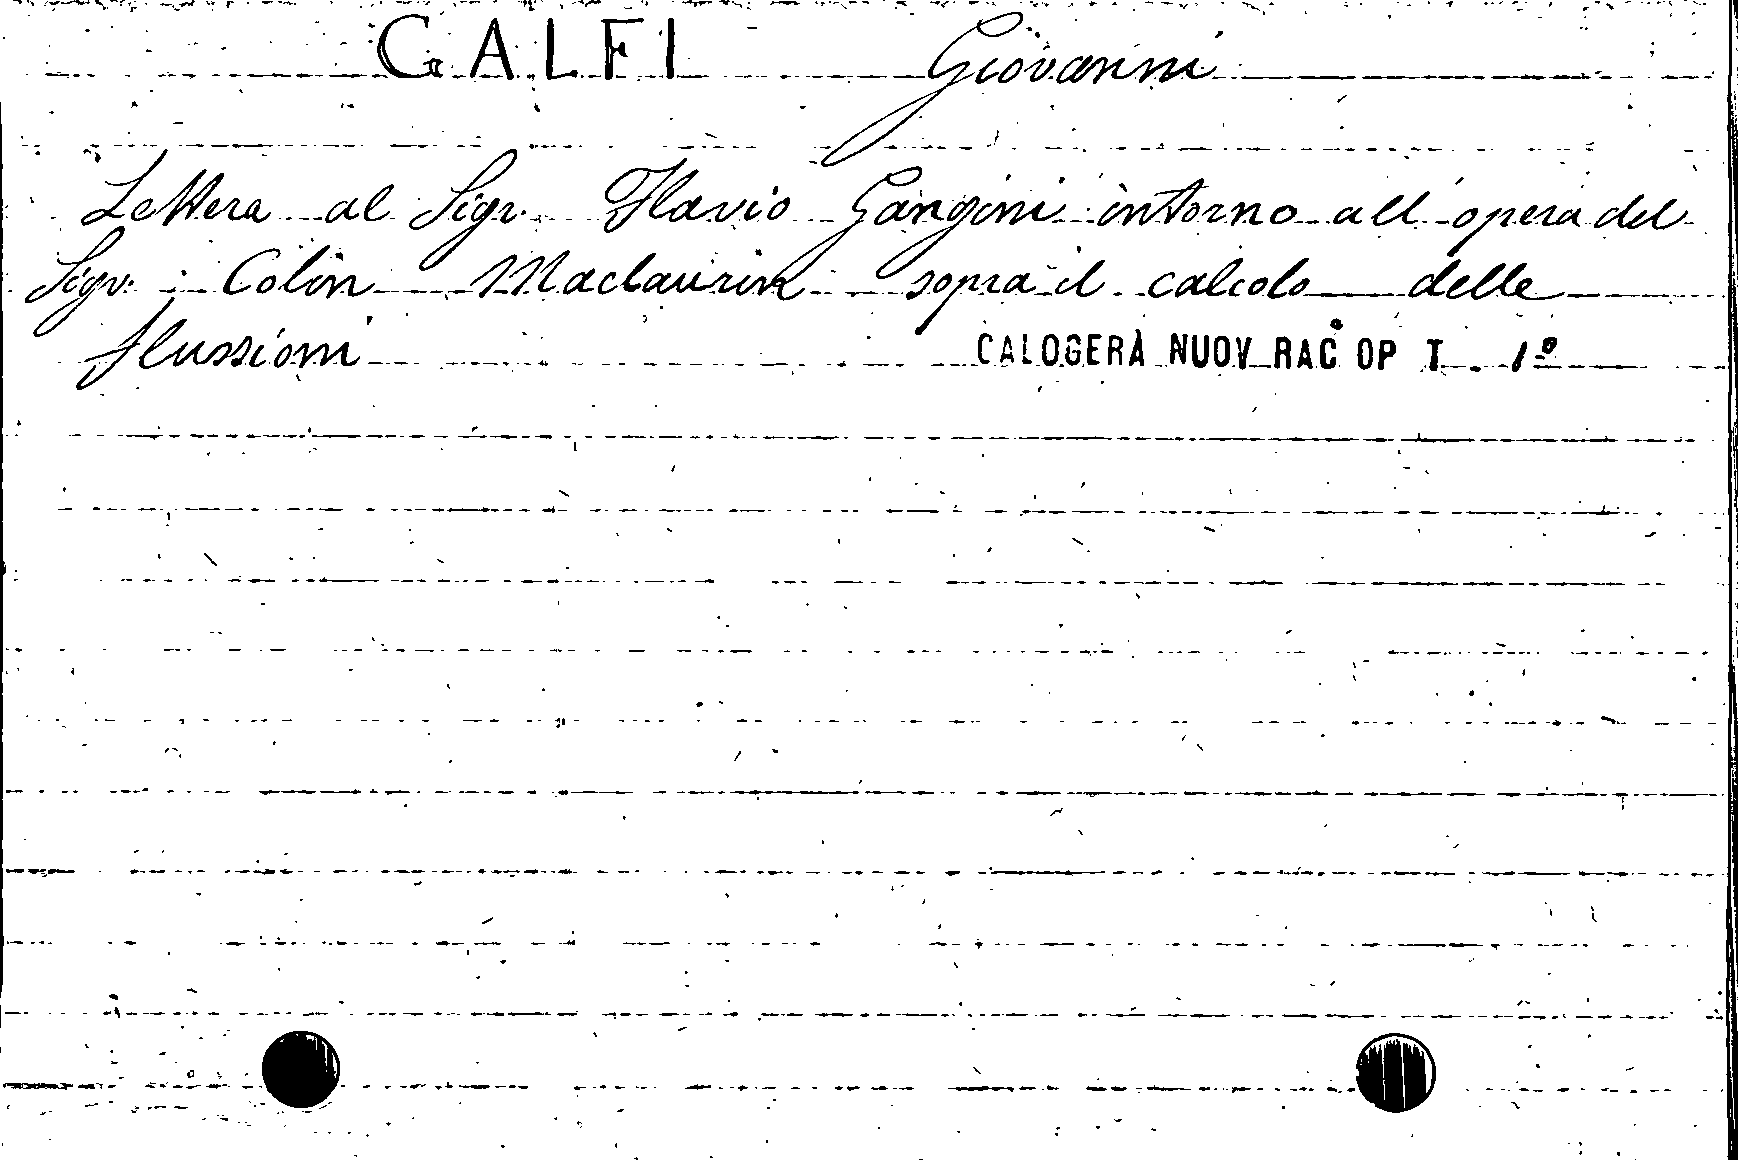 GALFI Giovanni
Lettera al Sigr. Flavio Gangini intorno all'opera del
Sigr. Colin Maclaurin sopra il calcolo delle
flussioni CALOGERÀ NUOV RAC OP T. 1º